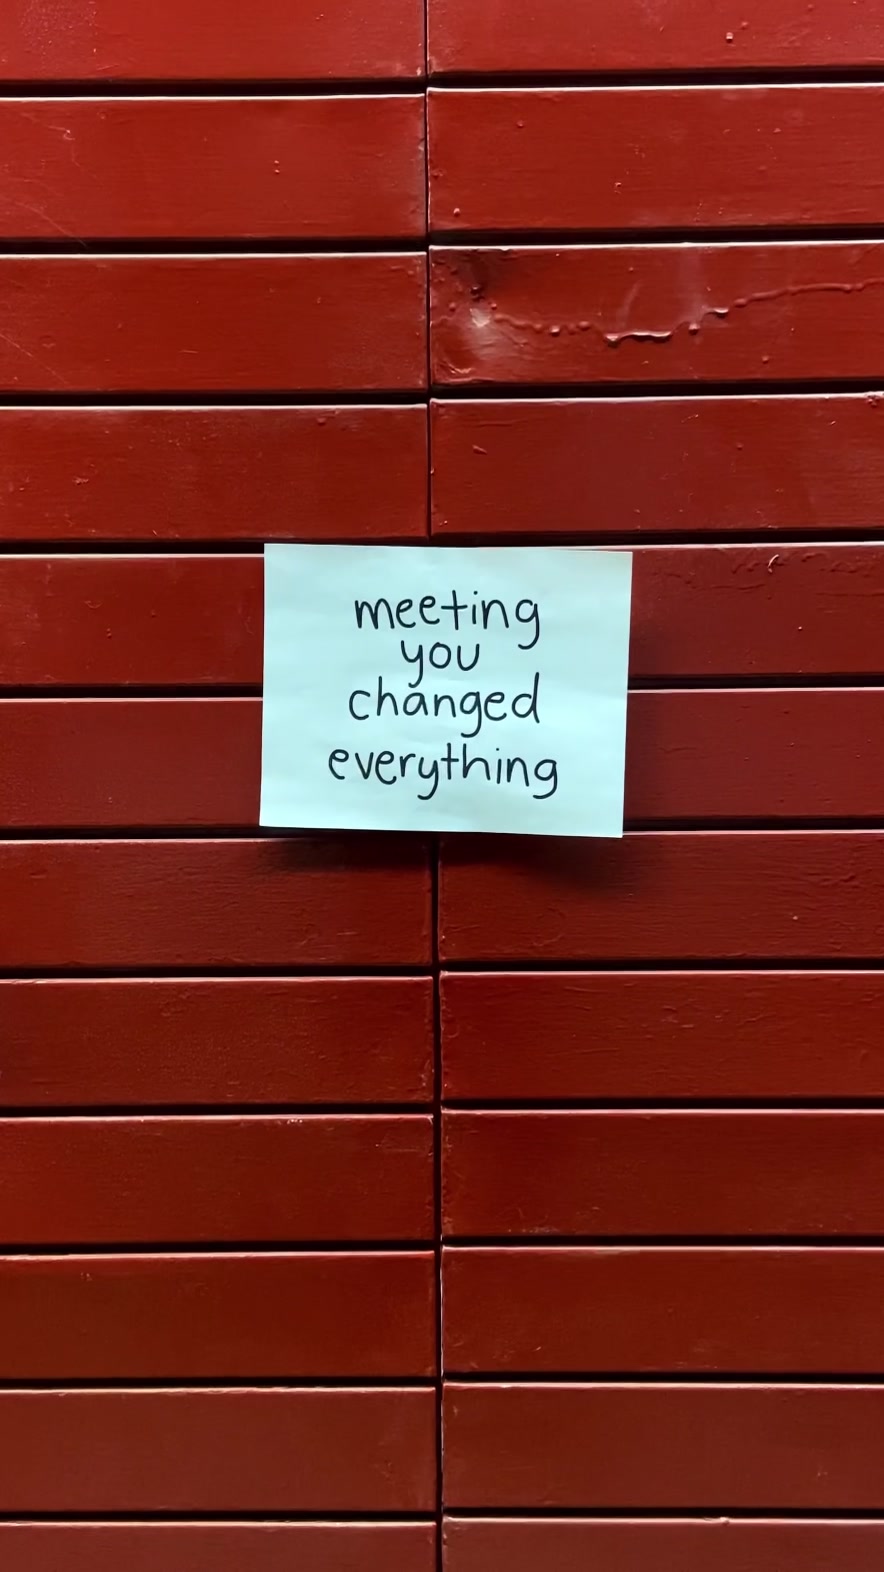 meeting
you
changed
everything